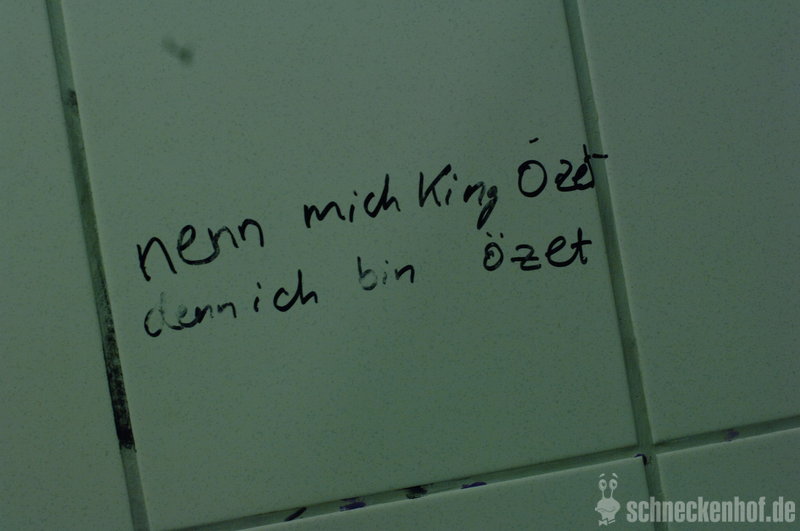 nenn mich King Özet
denn ich bin özet
schneckenhof.de